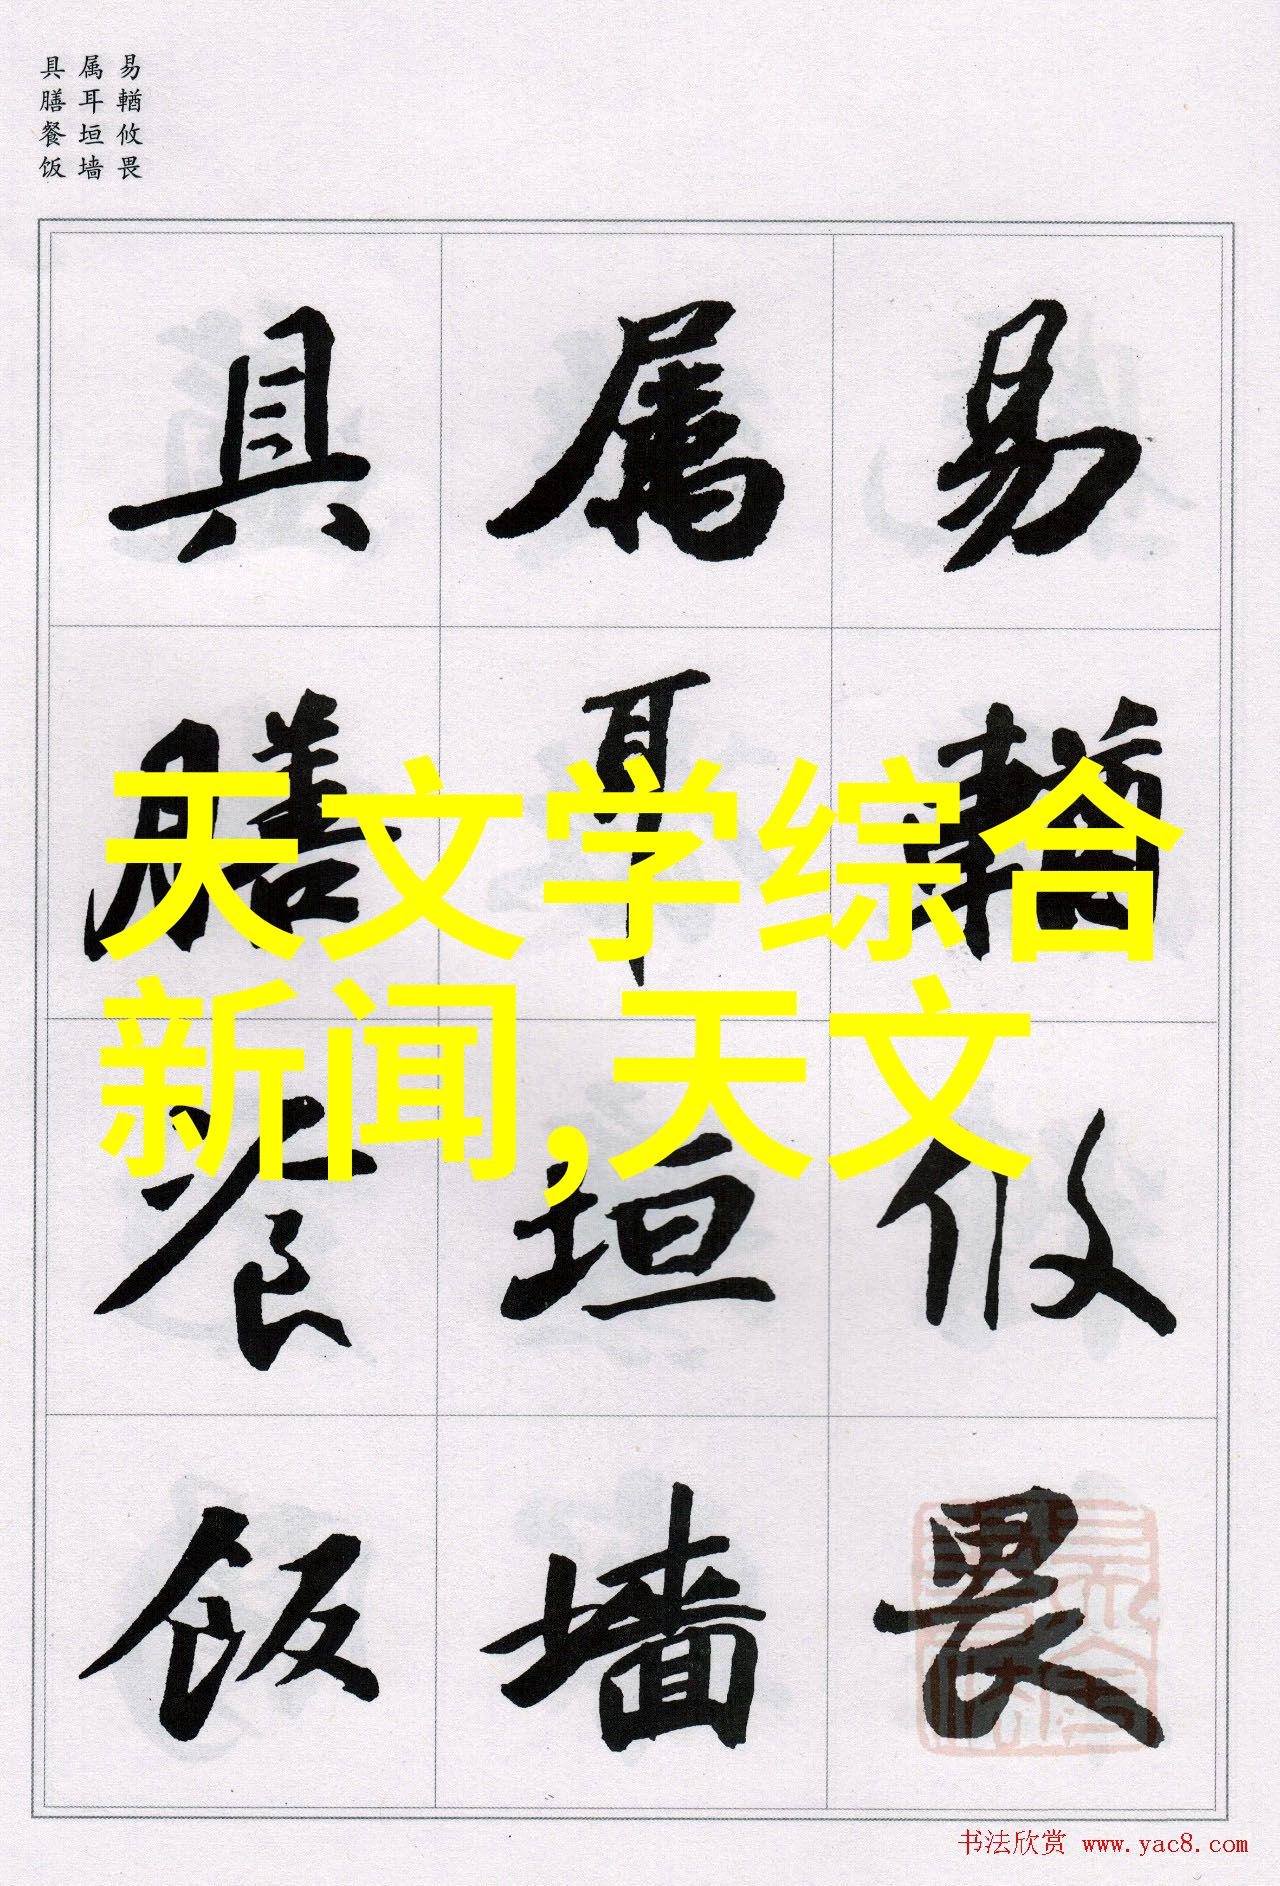 易輶攸畏
属耳垣墙
具膳餐饭
天文学综合
新闻,天文
易輶攸畏
属耳垣墙
具膳餐饭
书法欣赏 www.yac8.com